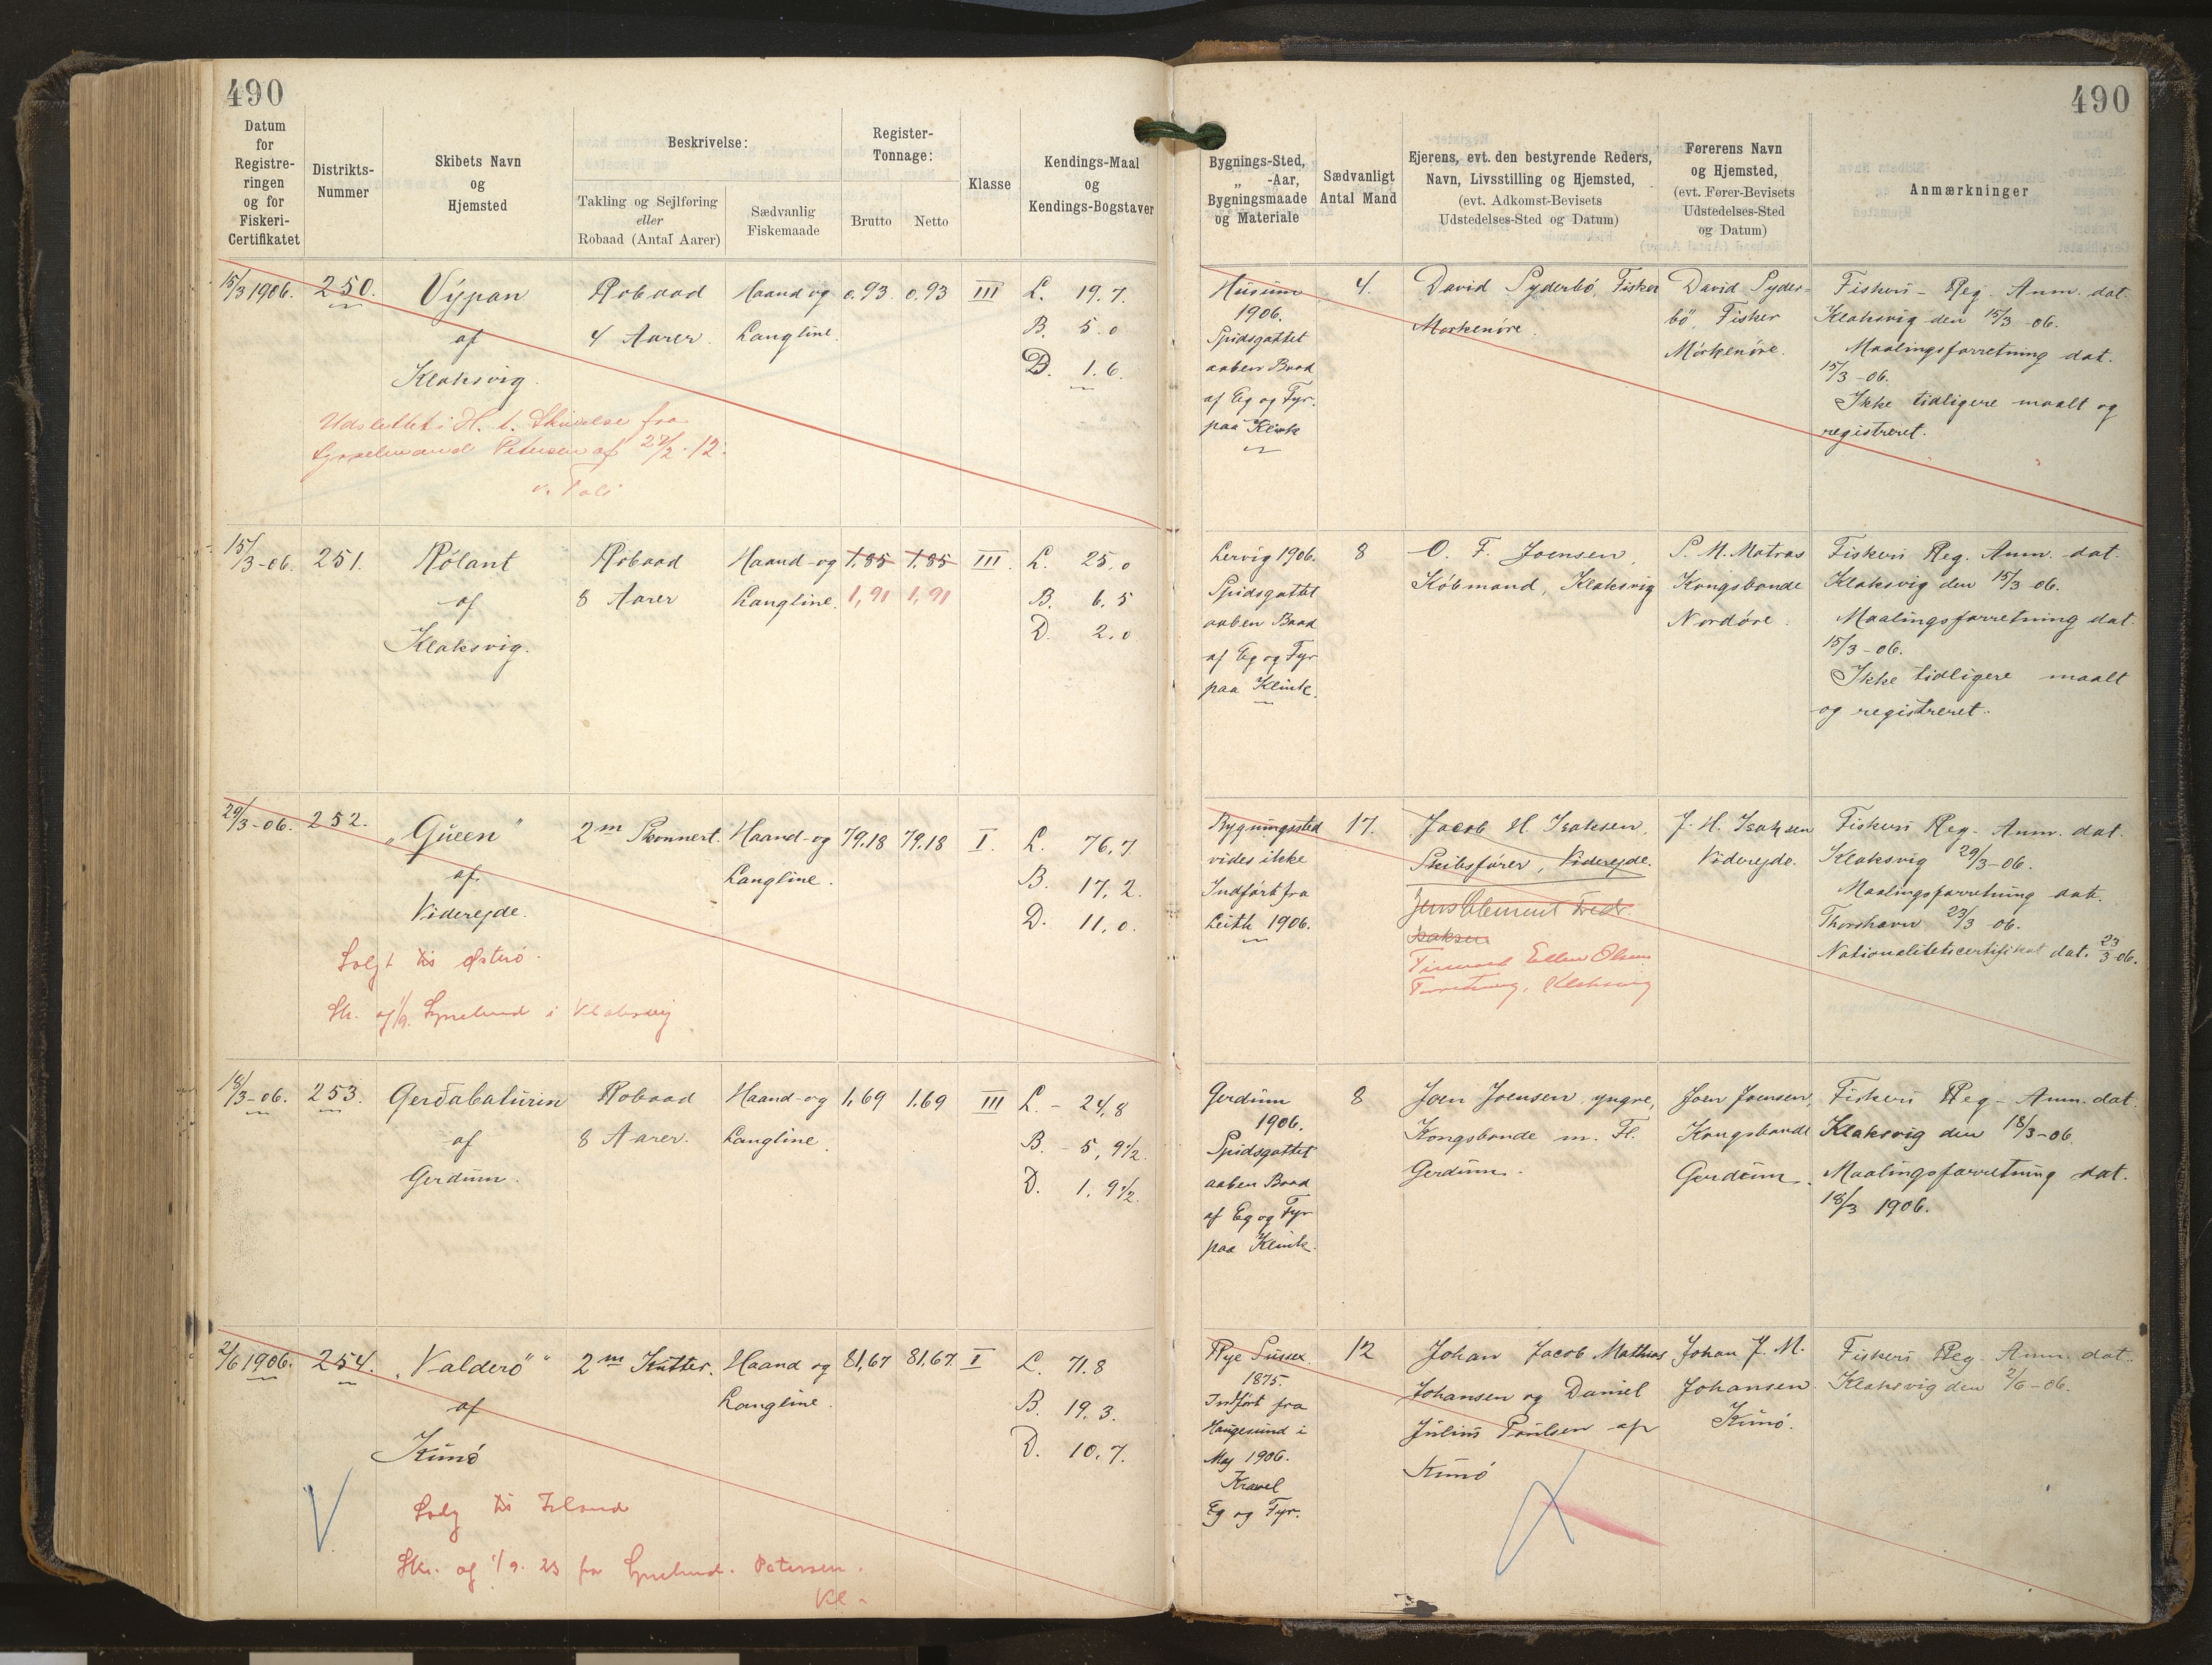 490
490
Datum
for
Registre-
ringen
og for
Fiskeri-
Certifikatet
Distrikts-
Nummer
Skibets Navn
og
Hjemsted
Beskrivelse:
Takling og Sejlføring
eller
Robaad (Antal Aarer)
Sædvanlig
Fiskemaade
Register-
Tonnage:
Brutto
Netto
Klasse
Kendings-Maal
og
Kendings-Bogstaver
Bygnings-Sted,
„ -Aar,
Bygningsmaade
og Materiale
Sædvanligt
Antal Mand
Ejerens, evt. den bestyrende Reders,
Navn, Livsstilling og Hjemsted,
(evt. Adkomst-Bevisets
Udstedelses-Sted og Datum)
Førerens Navn
og Hjemsted,
(evt. Fører-Bevisets
Udstedelses-Sted
og Datum)
Anmærkninger
15/3 1906.
250.
Vypan
af
Klaksvig.
Robaad
4 Aarer.
Haand og
Langline.
0.93
0.93
III
L. 19.7.
B. 5.0
D. 1.6.
Udslettet i H. t. Skrivelse fra
Sysselmand Petersen af 27/2.12.
Husum
1906.
Spidsgattet
aaben Baad
af Eg og Fyr.
paa Klink
4.
David Syderbö, Fisker
Morkenöre.
David Syder-
bö, Fisker
Mörkenöre.
Fiskeri-Reg. Anm. dat.
Klaksvig den 15/3-06.
Maalingsforretning dat.
15/3-06.
Ikke tidligere maalt og
registreret.
15/3-06.
251.
Rólant
af
Klaksvig.
Robaad
8 Aarer
Haand-og
Langline.
1,85
1,85
1,91
1,91
III.
L. 25,0
B. 6,5
D. 2,0
Lervig 1906.
Spidsgattet
aaben Baad
af Eg og Fyr
paa Klink.
8
O. F. Joensen,
Köbmand, Klaksvig
S. M. Matras
Kongsbonde
Nordöre.
Fiskeri Reg. Anm. dat.
Klaksvig den 15/3-06.
Maalingsforretning dat.
15/3-06.
Ikke tidligere maalt
og registreret.
29/3-06.
252.
„Queen"
af
Viderejde.
2m Skonnert.
Haand-og
Langline.
79.18
79.18
I.
L. 76,7
B. 17,2.
D. 11,0.
Solgt til Østerö.
Sk. af 1/9. i Klaksvig
Bygningssted
vides ikke
Indfört fra
Leith 1906.
17.
Jacob H. Isaksen,
Skibsförer, Viderejde.
Jens Clement Fredr.
Isaksen
Ellen Olsen
Forretning, Klaksvig
J. H. Isaksen
Viderejde.
Fiskeri Reg. Anm. dat.
Klaksvig 29/3-06.
Maalingsforretning dat.
Thorshavn 23/3 06.
Nationalitetscertifikat dat. 23/3-06.
18/3-06.
253.
Gerðabaturin
af
Gerdum.
Robaad
8 Aarer.
Haand-og
Langline.
1,69
1,69
III
L. - 24,8
B. - 5, 9 1/2.
D. 1, 9 1/2.
Gerdum
1906.
Spidsgattet
aaben Baad
af Eg og Fyr
paa Klink.
8
Joen Joensen, yngre,
Kongsbonde m. Fl.
Gerdum.
Joen Joensen,
Kongsbonde
Gerdum.
Fiskeri Reg-Anm. dat.
Klaksvig den 18/3-06.
Maalingsforretning dat.
18/3 1906.
2/6 1906.
254.
„Valderö"
af
Kunö
2m Kutter.
Haand og
Langline.
81,67
81,67.
I
L. 71.8
B. 19.3.
D. 10.7.
Solg til Island
Sk. af 1/9. 23 fra Petersen.
Kl.
Rye Sussex
1875.
Indfört fra
Haugesund i
Maj 1906.
Kravel
Eg og Fyr.
12
Johan Jacob Mathias
Johansen og Daniel
Julius Poulsen af
Kunö
Johan J. M.
Johansen
Kunö.
Fiskeri Reg. Anm. dat.
Klaksvig den 2/6-06.